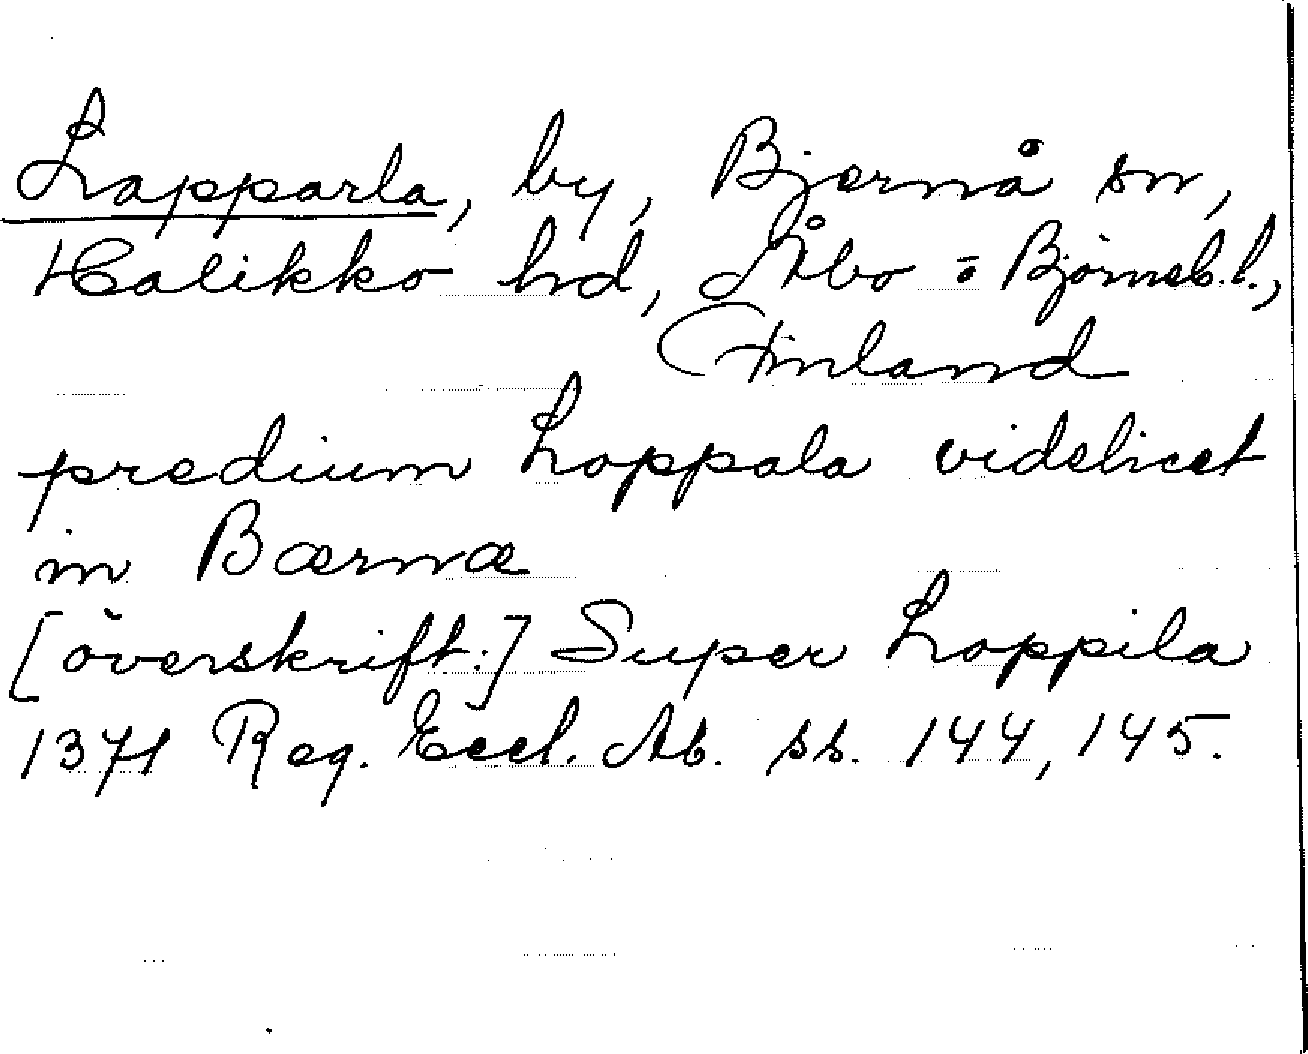 Lapparla, by, Bjärnå sn,
Halikko hd, Åbo = Björneb. l.,
Finland
predium Loppala videlicet
in Bærnæ
[överskrift:] Super Loppila
1371 Reg. Eccl. Ab. ss. 144, 145.